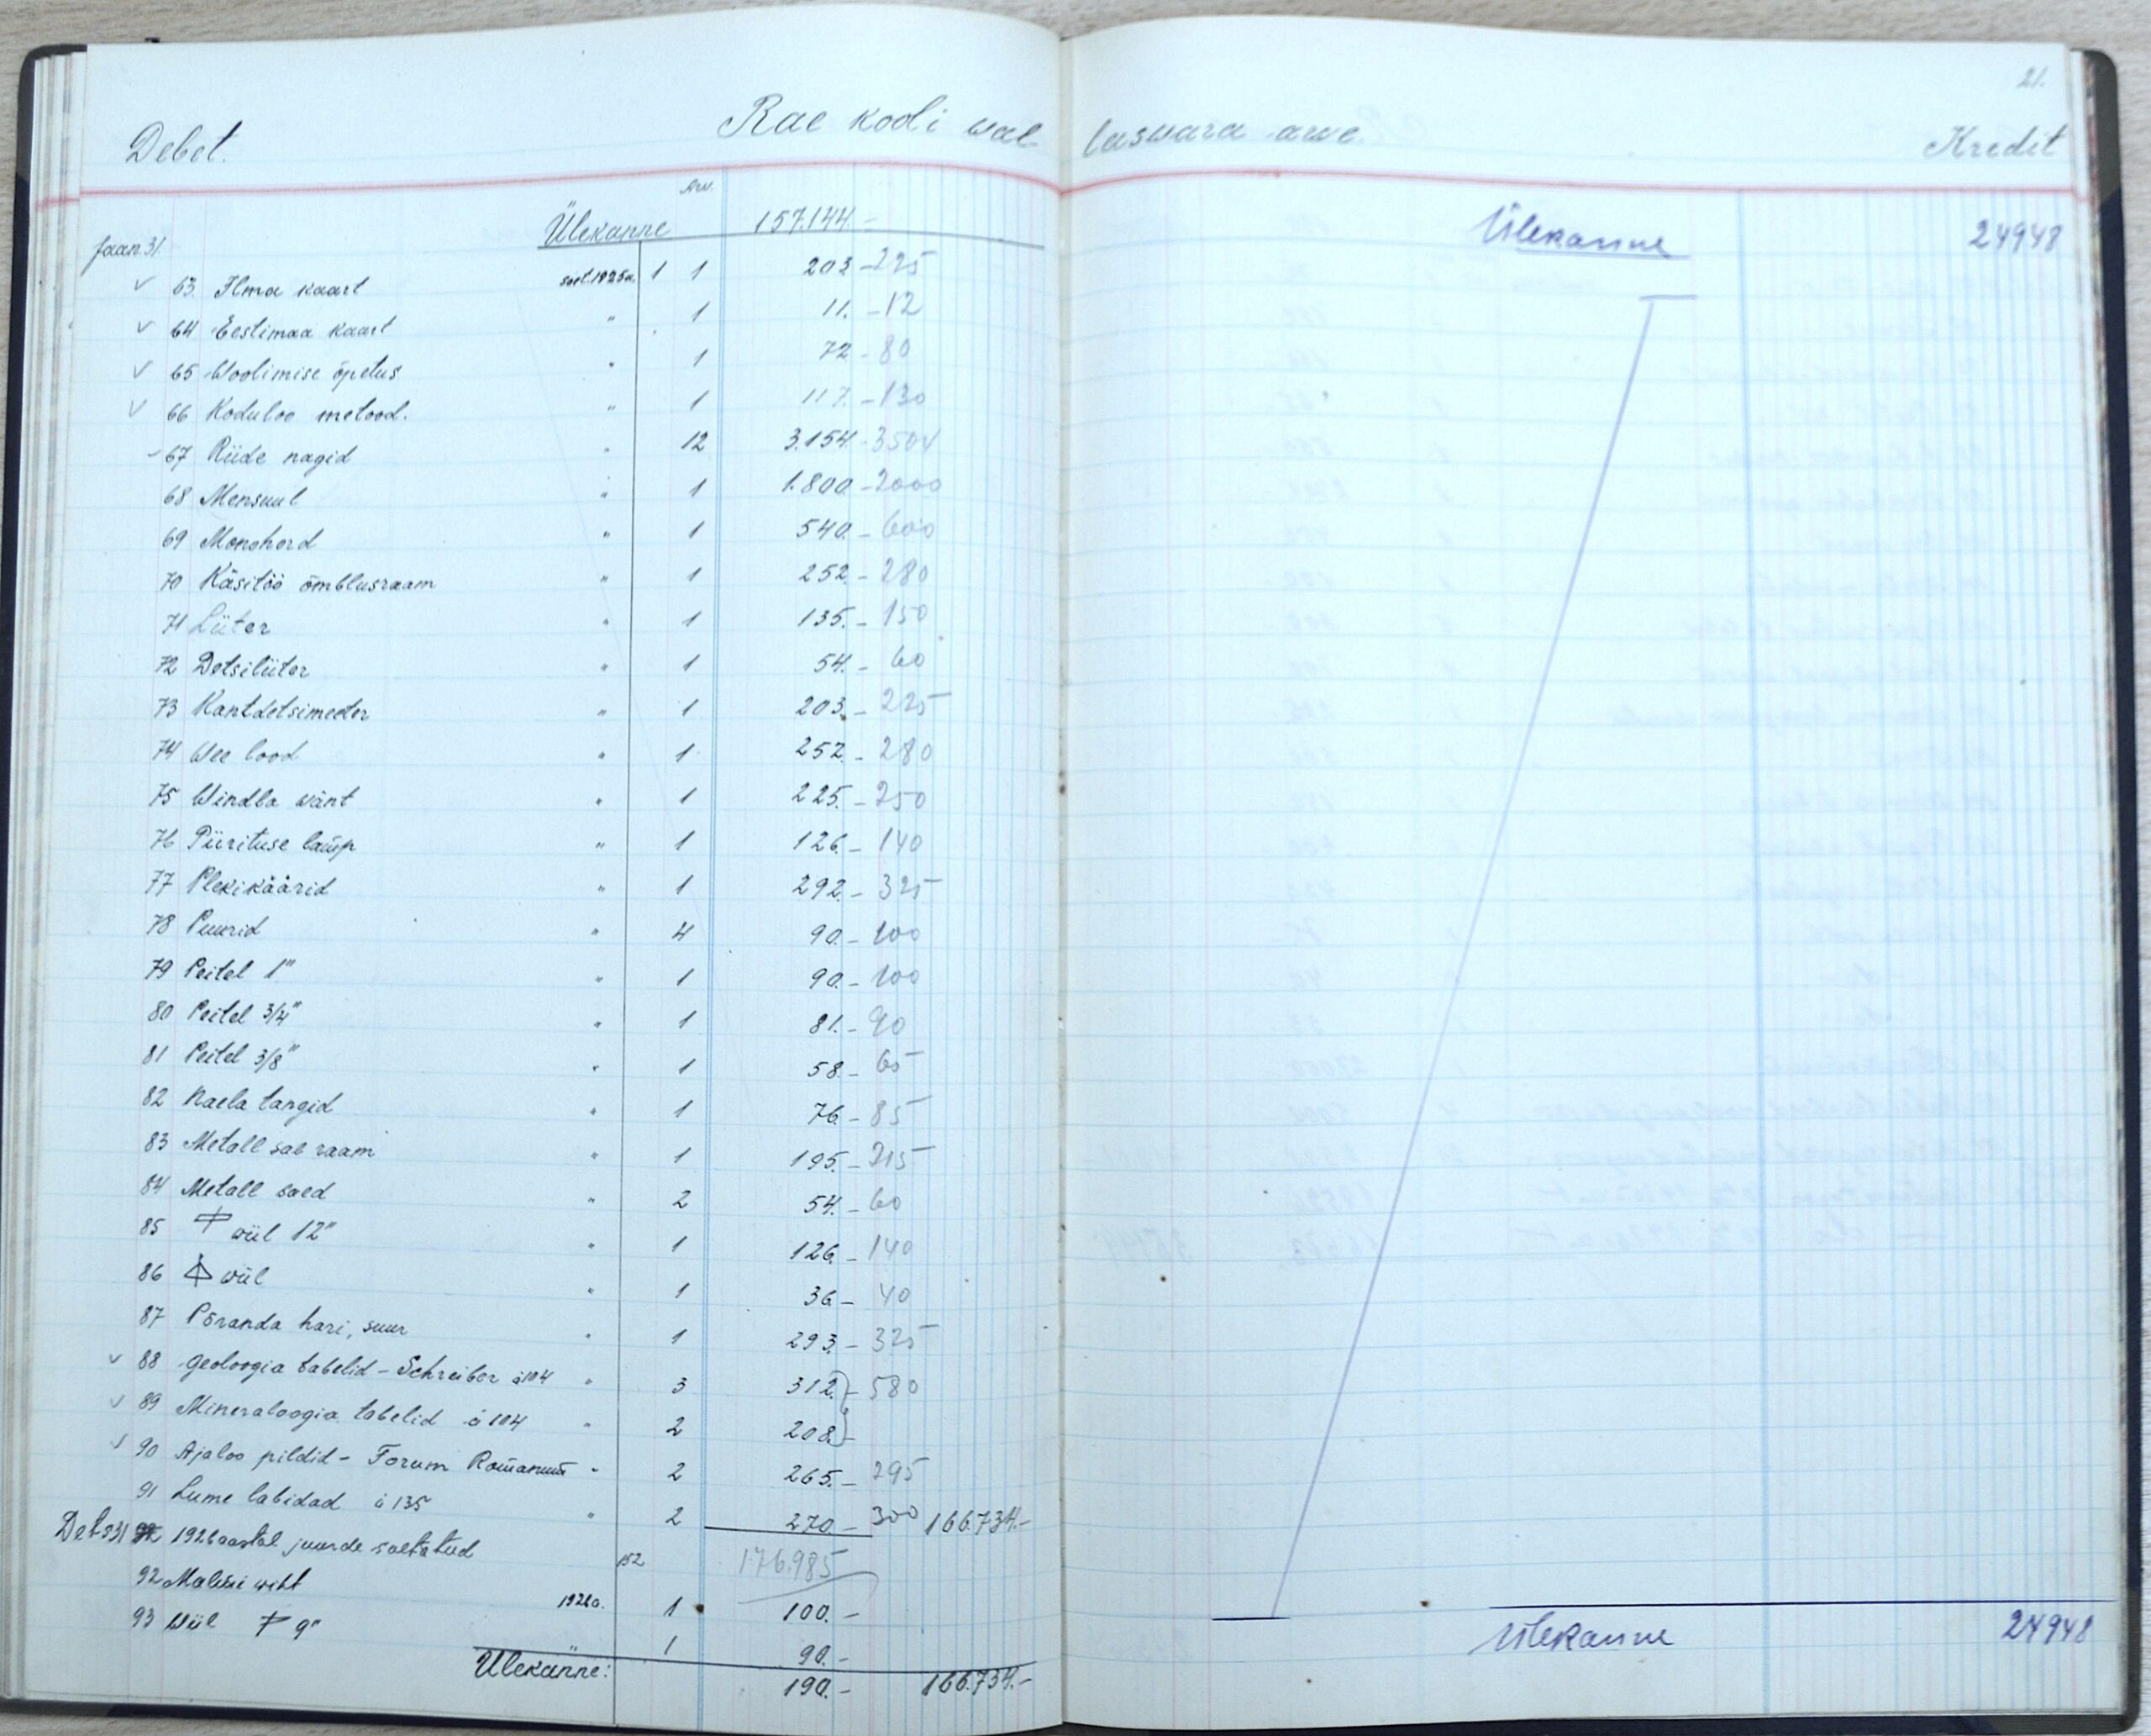 21.
Debet. Rae kooli wal- laswara arwe. Kredit
Arv.
Ülekanne 157.144.-
Jaan. 31.
✓ 63. Ilma kaart soet. 1925a. 1 1 203 - 225
✓ 64 Eestimaa kaart " 1 11. - 12
✓ 65 Woolimise õpetus " 1 72 - 80
✓ 66 Koduloo metood. " 1 117. - 130
- 67 Riide nagid " 12 3.154 - 3504
68 Mensuul " 1 1.800 - 2000
69 Monohord " 1 540. - 600
70 Käsitöö õmblusraam " 1 252. - 280
71 Liiter " 1 135. - 150
72 Detsiliiter " 1 54. - 60
73 Kantdetsimeeter " 1 203. - 225
74 Wee lood " 1 252. - 280
75 Windla wänt " 1 225. - 250
76 Piirituse lamp " 1 126. - 140
77 Plekikäärid " 1 292. - 325
78 Puurid " 4 90. - 100
79 Peitel 1" " 1 90. - 100
80 Peitel 3/4" " 1 81. - 90
81 Peitel 3/8" " 1 58. - 65
82 Naela tangid " 1 76. - 85
83 Metall sae raam " 1 195. - 215
84 Metall saed " 2 54. - 60
85 wiil 12" " 1 126. - 140
86 wiil " 1 36 - 40
87 Põranda hari, suur " 1 293. - 325
✓ 88 Geoloogia tabelid - Schreiber à 104 " 3 312. - 580
✓ 89 Mineraloogia tabelid à 104 " 2 208. -
✓ 90 Ajaloo pildid - Forum Romanum " 2 265. - 295
91 Lume labidad à 135 " 2 270. - 300 166.734.-
Dets 31 1926 aastal juurde soetatud 152 176.985
92 wiht 1926a. 1 100. -
93 Wiil 9" " 1 90. -
Ülekanne: 190. - 166.734.-
Ülekanne 24948
Ülekanne 24948